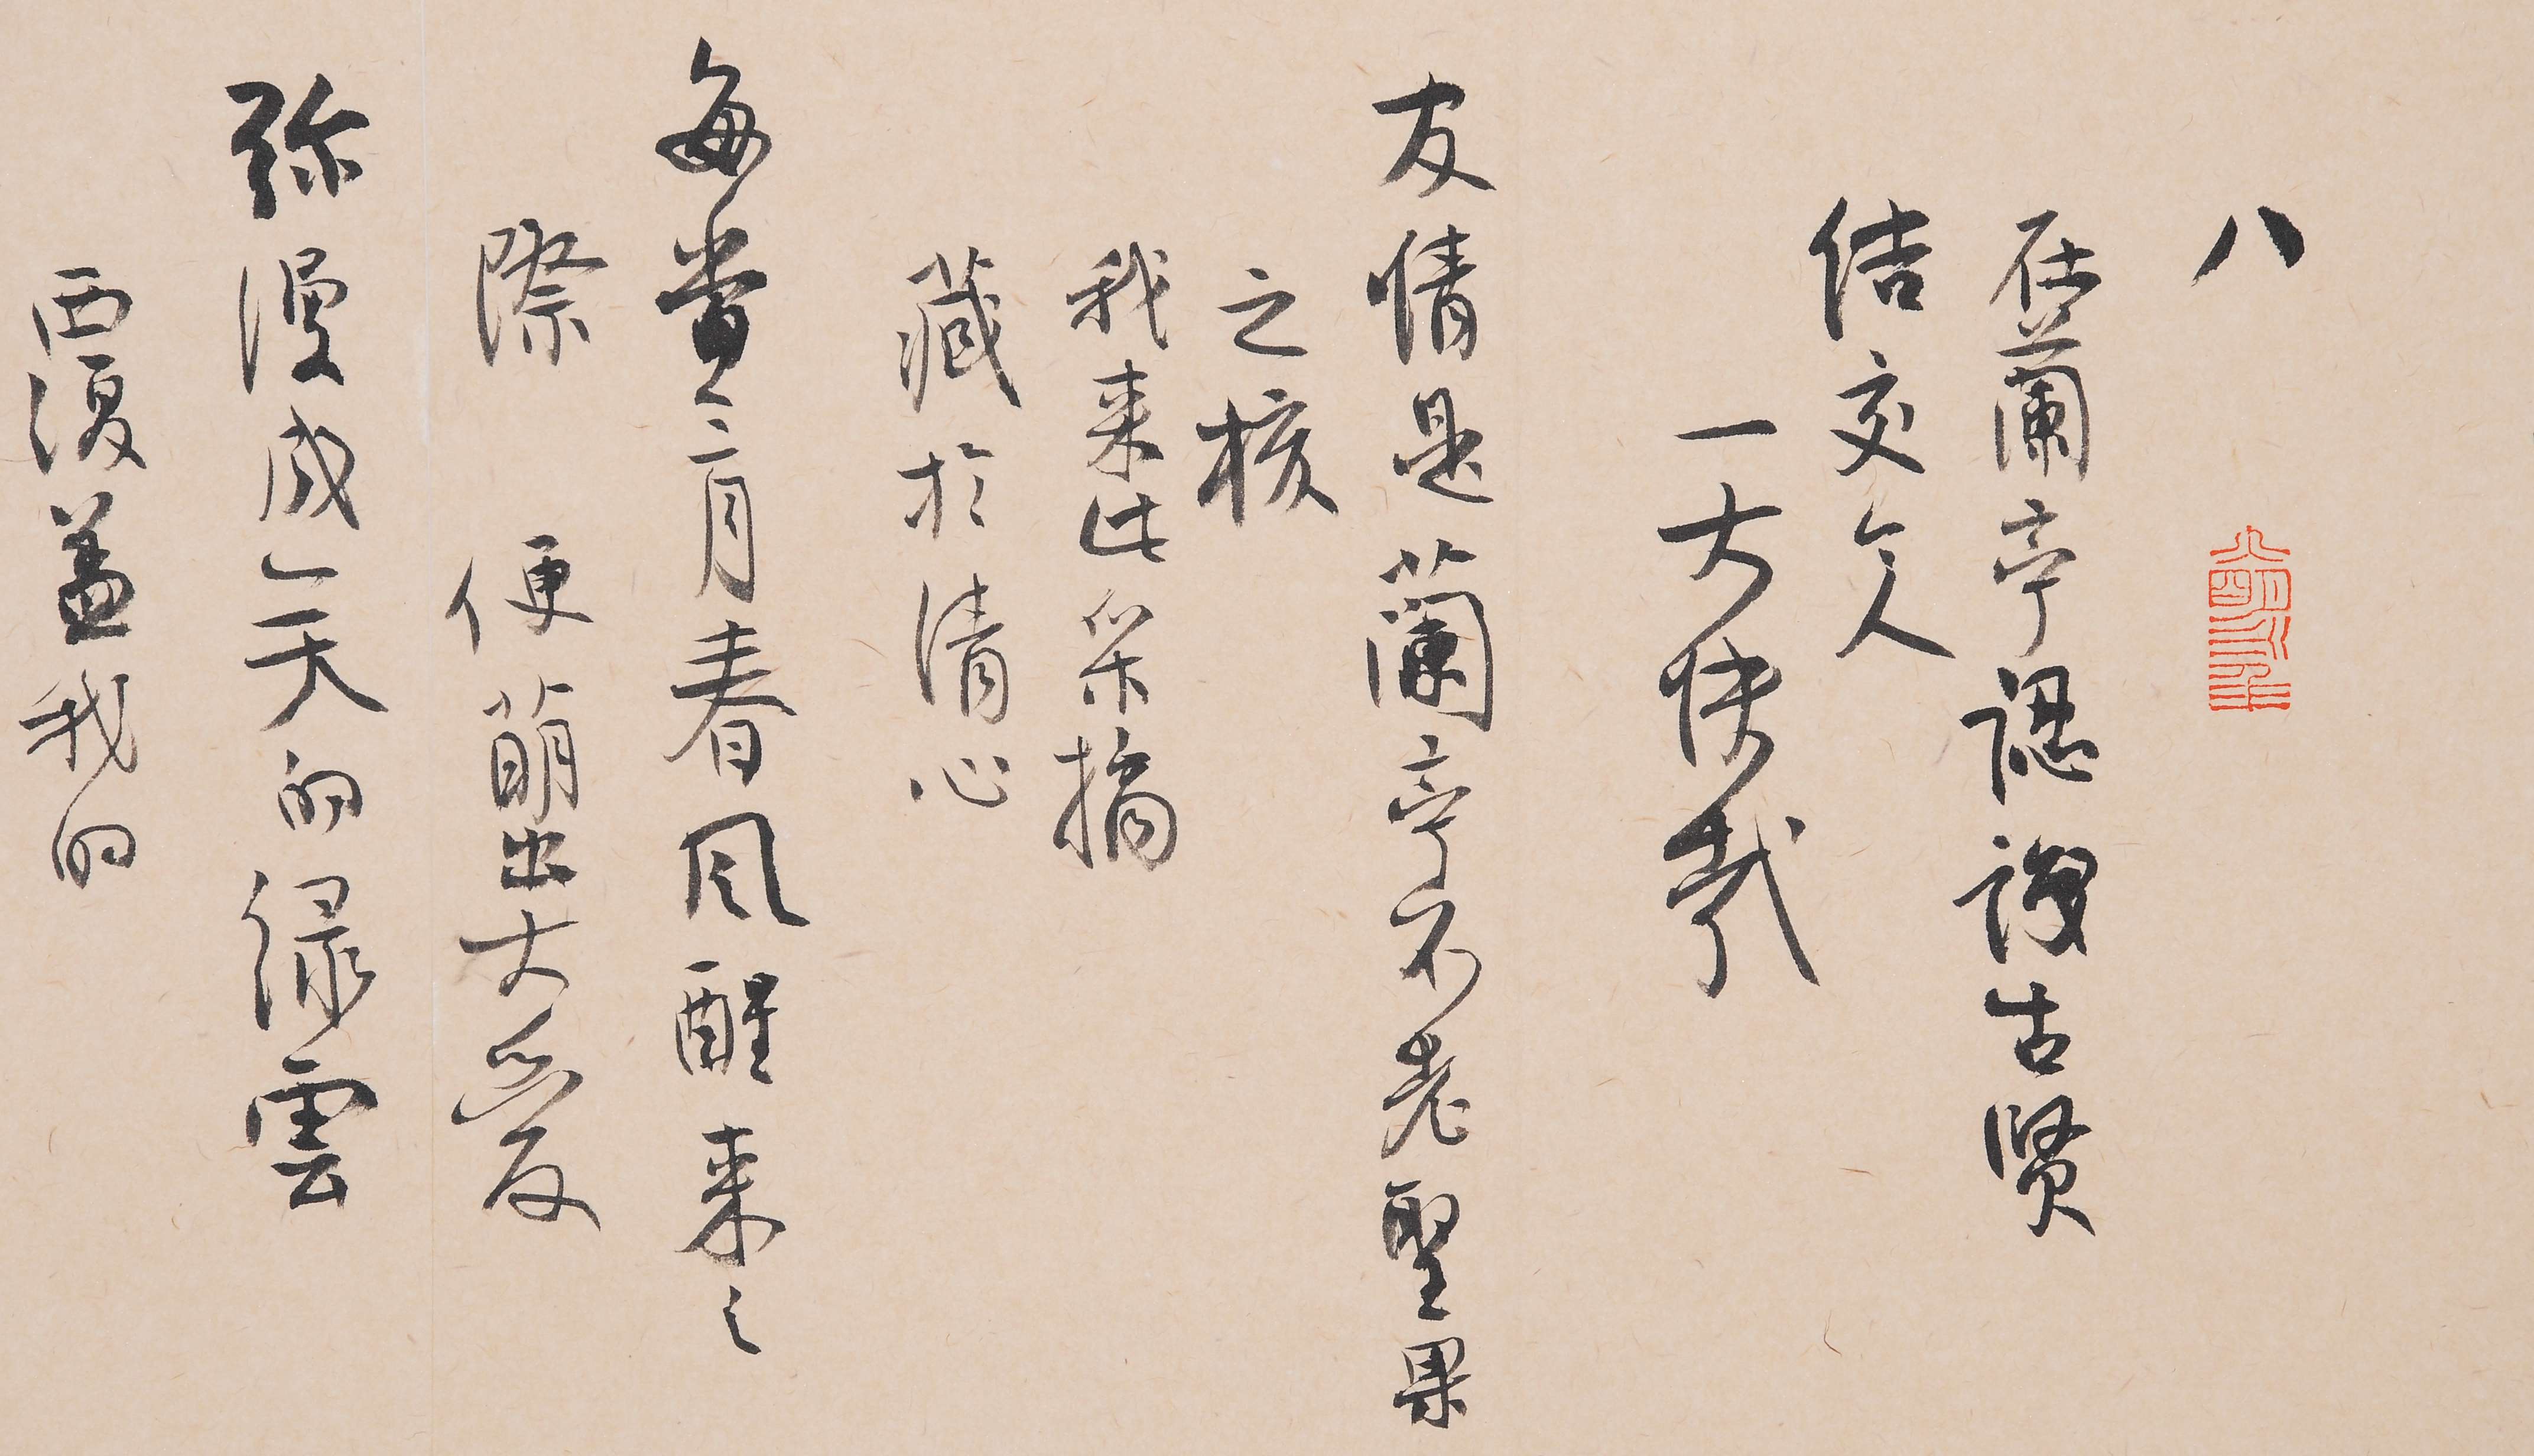 八
在蘭亭認識古賢
结交令人
一大快哉
友情是蘭亭不老聖果
之核
我来此采摘
藏於清心
每當三月春風醒来之
際 便萌出大愛
弥漫成一天的绿雲
覆蓋我的